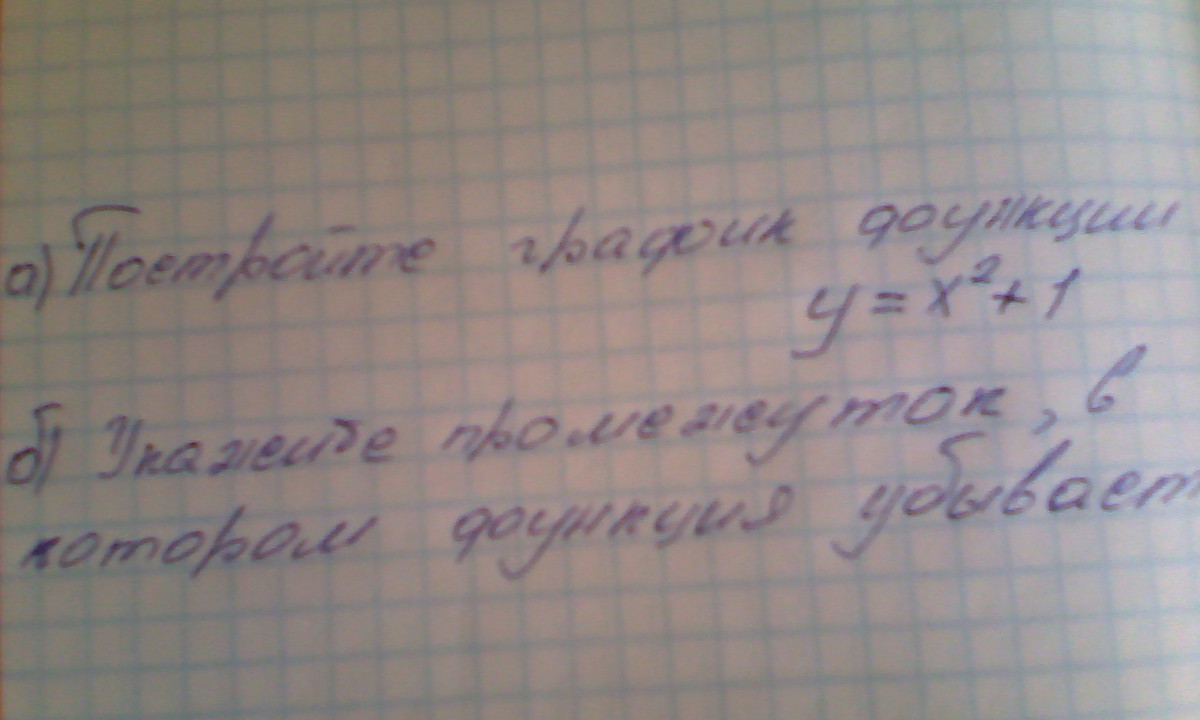 а) Постройте график функции
y = x² + 1
б) Укажите промежуток, в
котором функция убывает